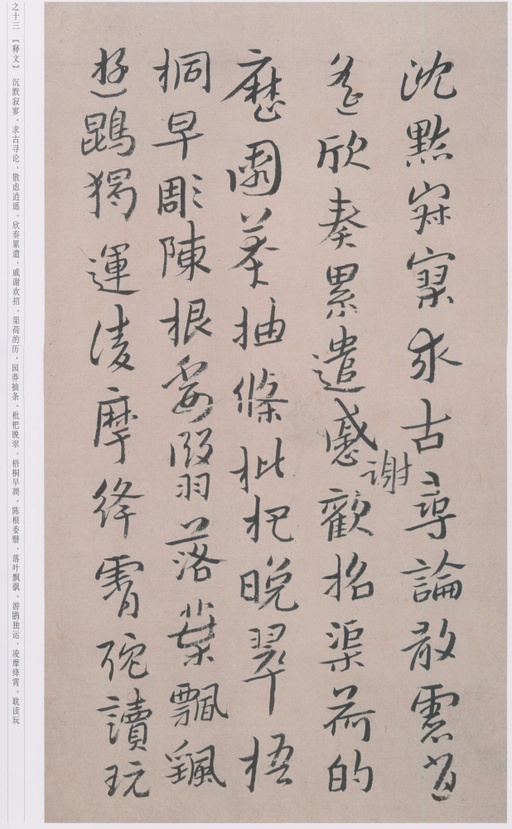 沈默寂寥求古尋論散慮逍
遙欣奏累遣慼謝歡招渠荷的
歷園莽抽條枇杷晚翠梧
桐早彫陳根委翳落葉飄颻
遊鵾獨運凌摩絳霄耽讀玩
之十三 【释文】 沉默寂寥，求古寻论，散虑逍遥。欣奏累遣，戚谢欢招。渠荷的历，园莽抽条。枇杷晚翠，梧桐早凋。陈根委翳，落叶飘飖。游鹍独运，凌摩绛霄。耽读玩